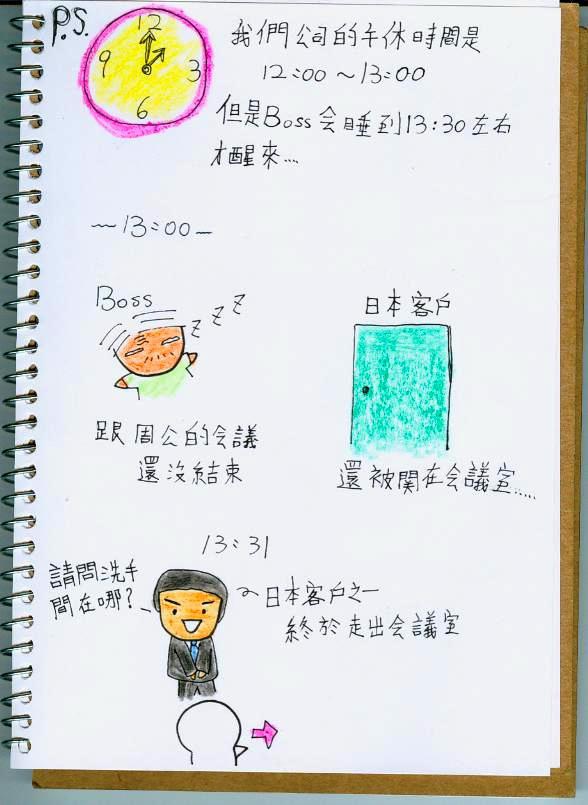 P.S.
12
9
3
6
我們公司的午休時間是
12:00～13:00
但是Boss会睡到13:30左右
才醒來...
～13:00～
Boss
z z z
跟周公的会議
還沒結束
日本客戶
還被関在会議室.....
13:31
請問洗手
間在哪?
日本客戶之一
終於走出会議室